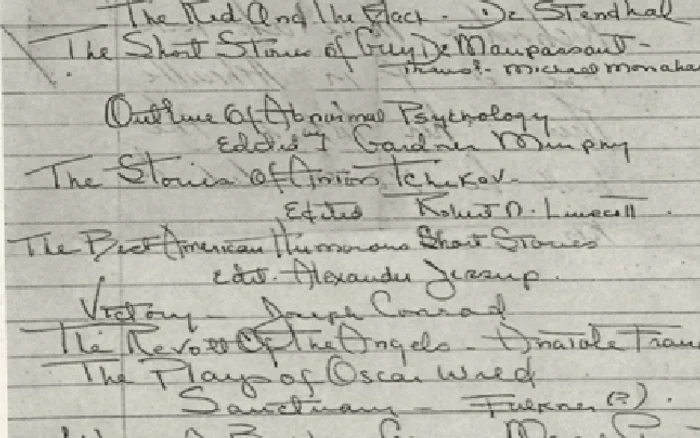 The Red And The Black - De Stendhal
The Short Stories of Guy De Maupassant -
Transl- Michael Monahan
Outline Of Abnormal Psychology
Edited by Gardner Murphy
The Stories Of Anton Tchekov -
Edited Robert N. Linscott.
The Best American Humorous Short Stories
Edit. Alexander Jessup.
Victory - Joseph Conrad
The Revolt Of The Angels - Anatole Fran
The Plays of Oscar Wild
Sanctuary - Faulkner (?).